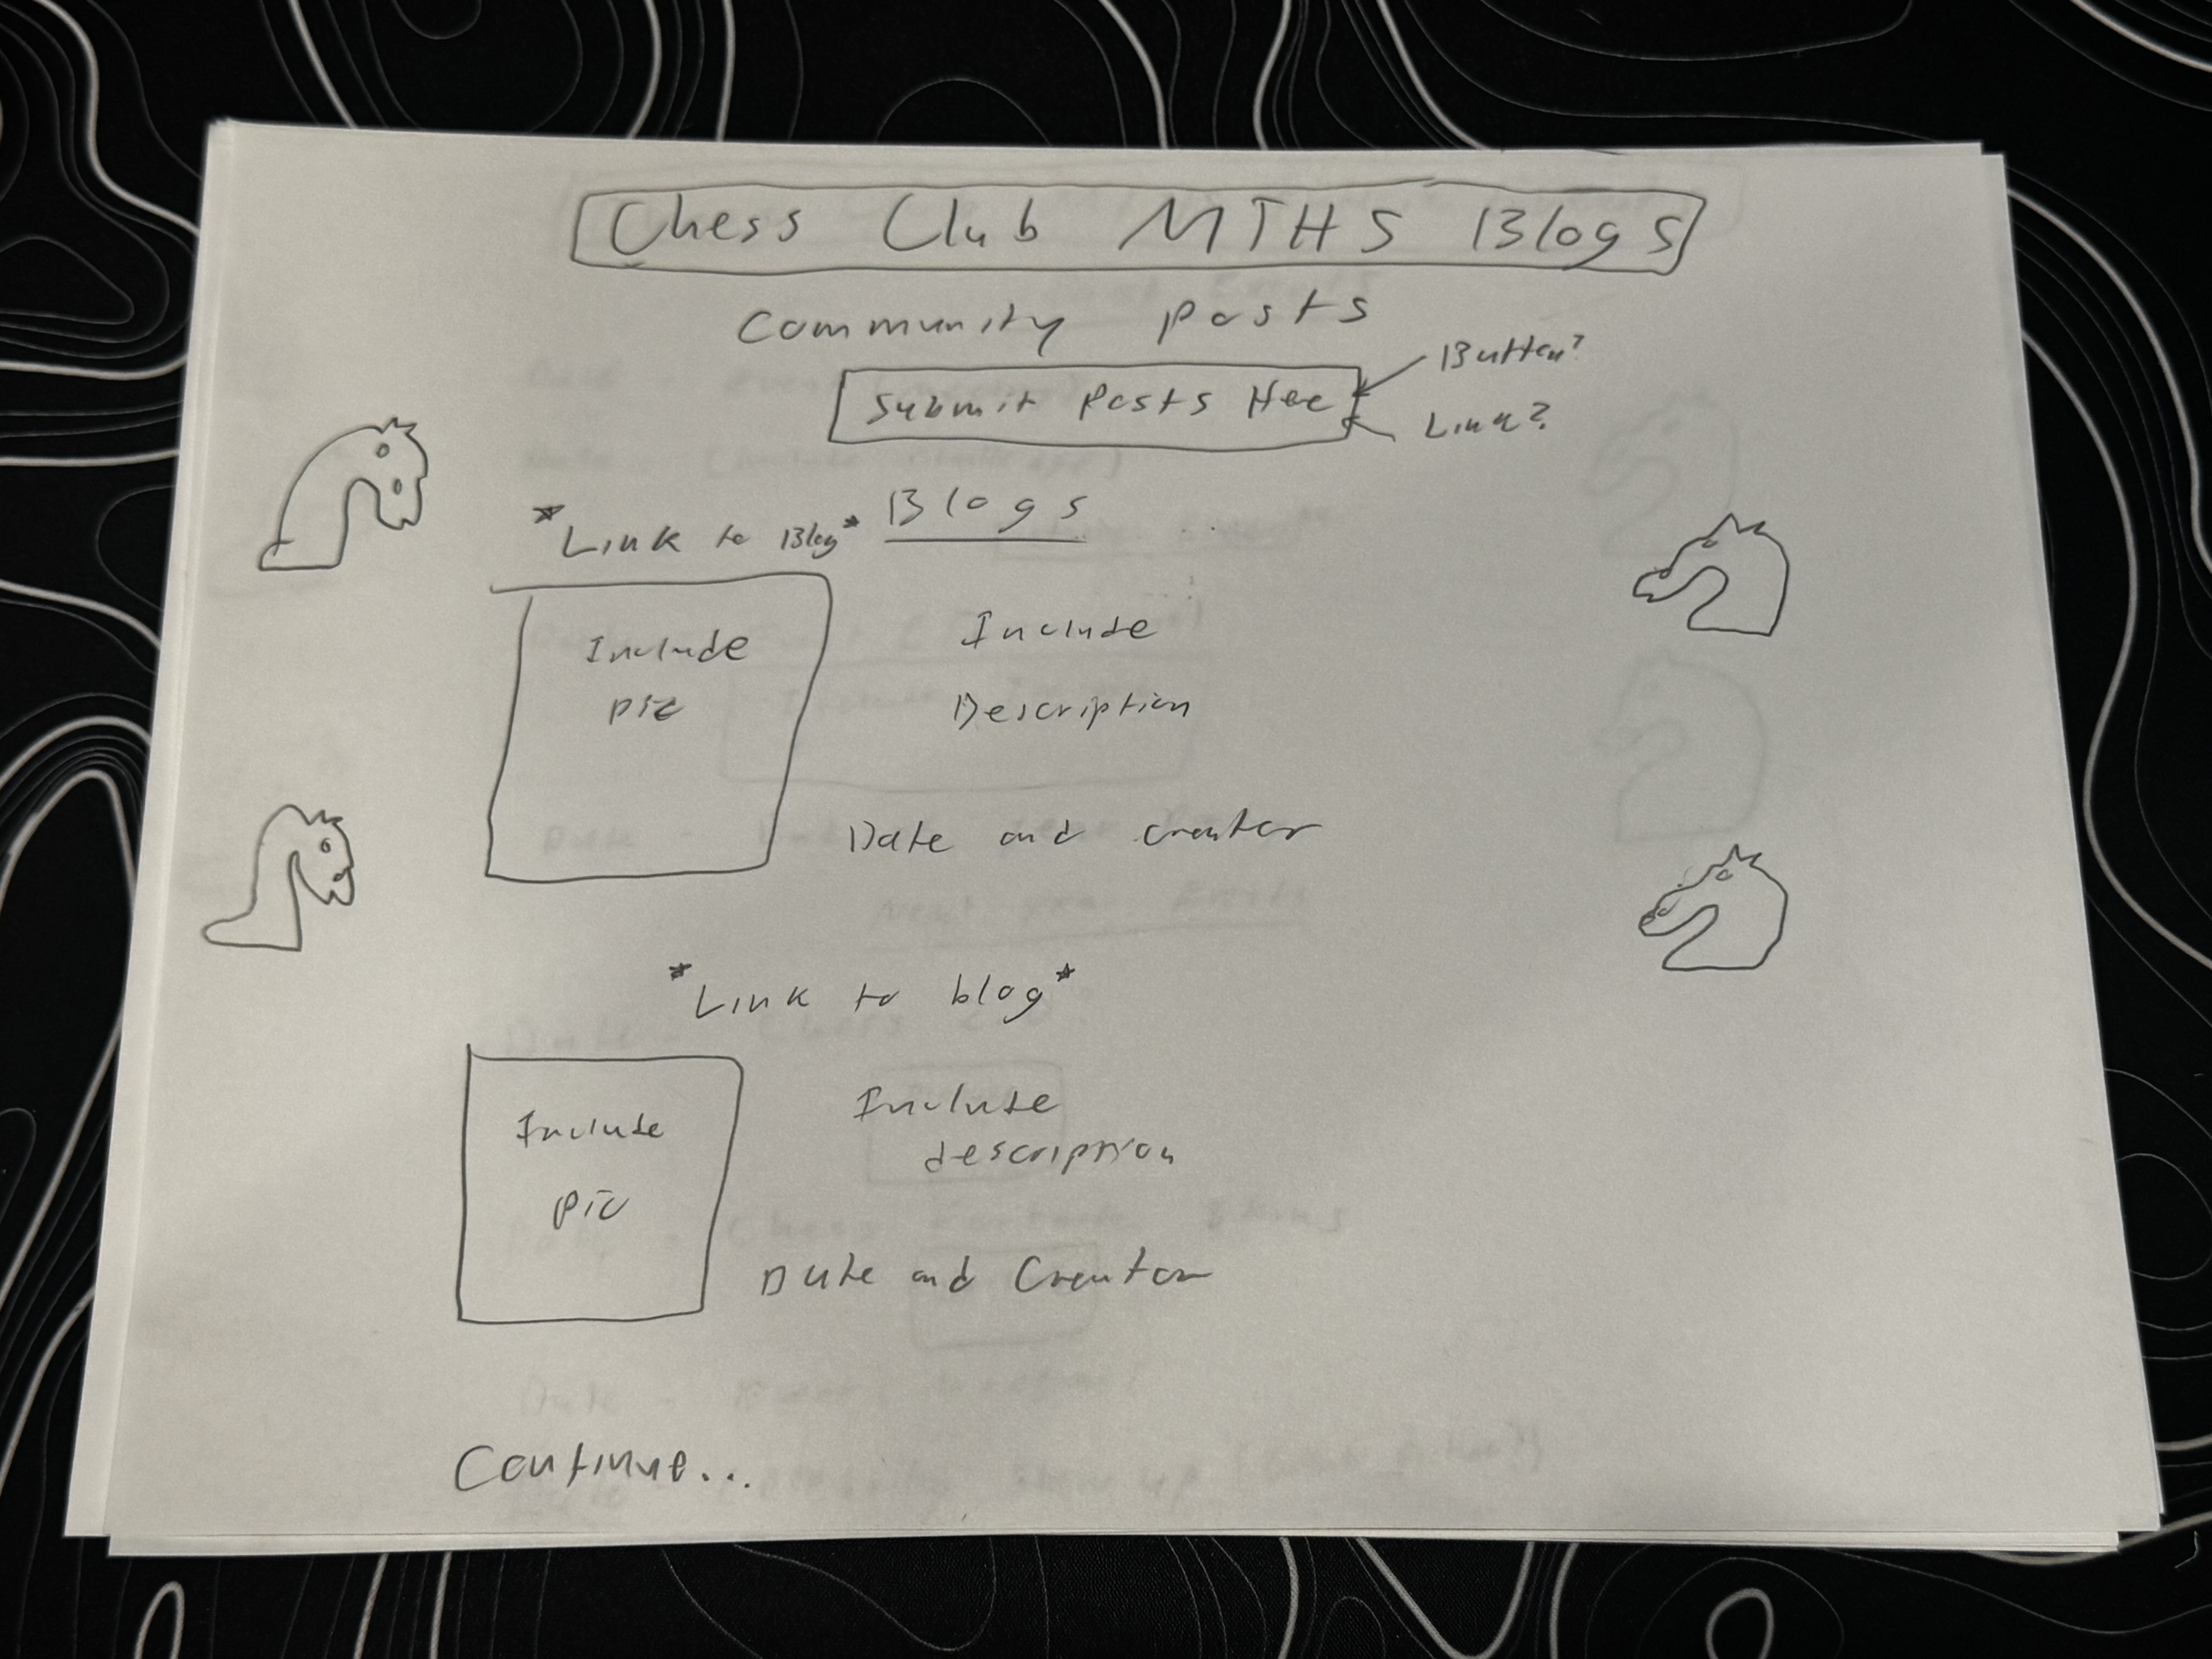 Chess Club MTHS Blogs
Community posts
Submit Posts Hee
Button?
Link?
Blogs
*Link to Blog*
Include
pic
Include
Description
Date and creator
*Link to blog*
Include
pic
Include
description
Date and Creator
Continue...